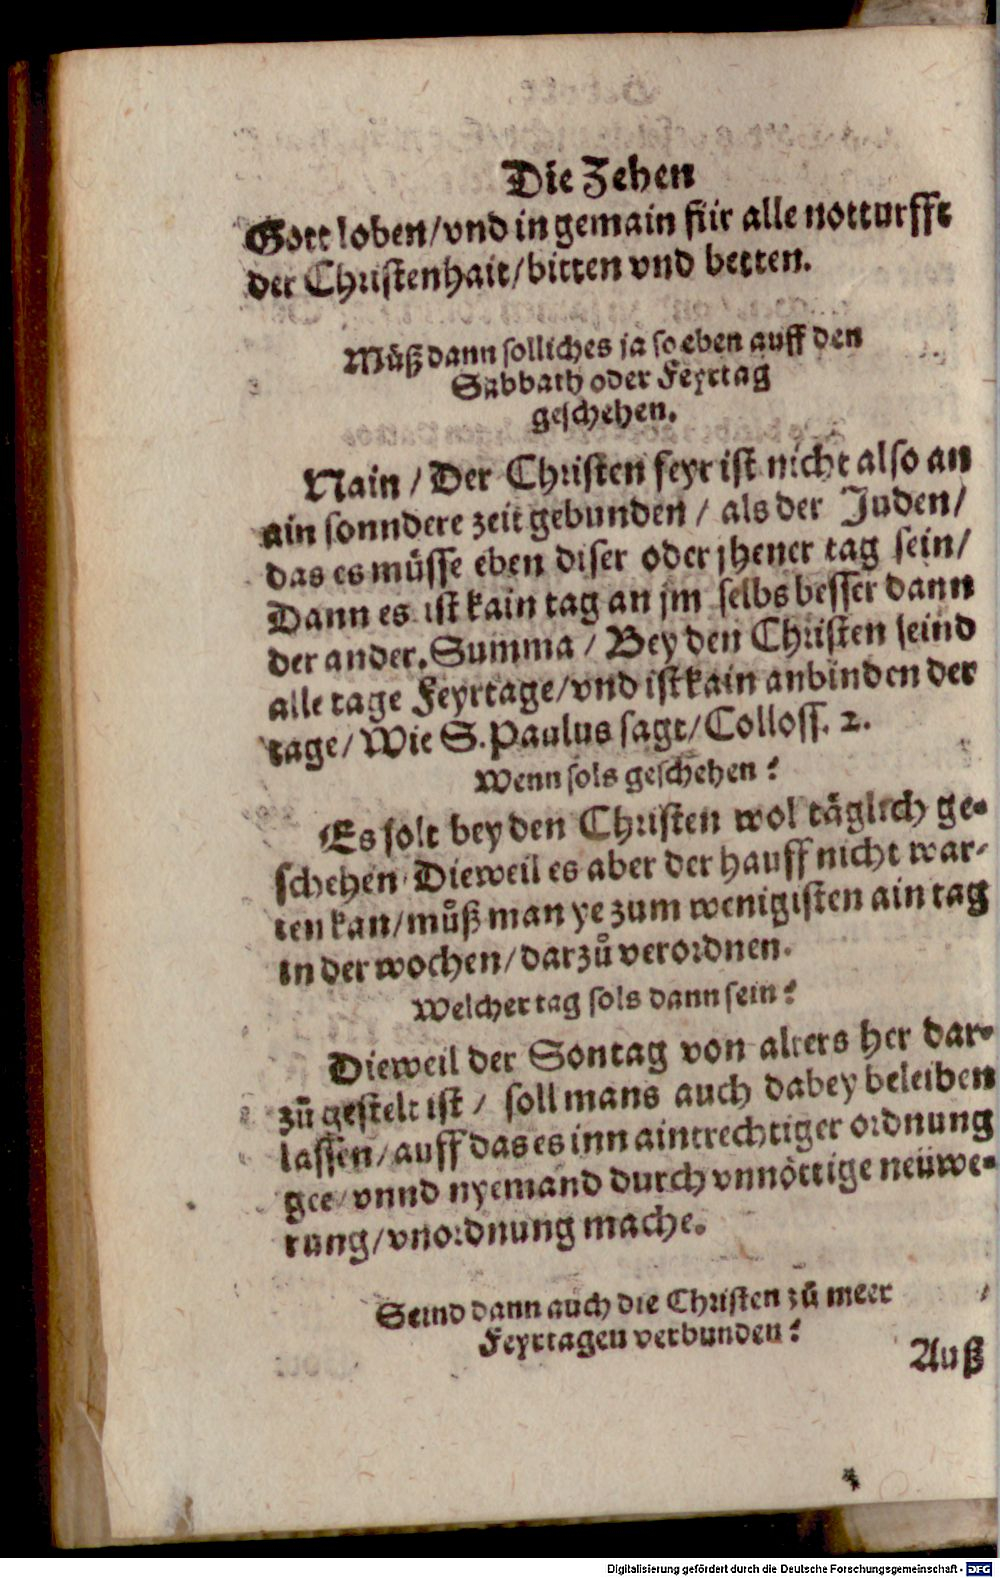 Die Zehen
Gott loben/vnd in gemain für alle notturfft
der Christenhait/bitten vnd betten.
Müß dann solliches ja so eben auff den
Sabbath oder Feyrtag
geschehen.
Nain / Der Christen feyr ist nicht also an
ain sonndere zeit gebunden / als der Juden/
das es müsse eben diser oder jhener tag sein/
Dann es ist kain tag an jm selbs besser dann
der ander. Summa / Bey den Christen seind
alle tage Feyrtage/vnd ist kain anbinden der
tage/ Wie S. Paulus sagt/ Colloss. 2.
Wenn sols geschehen?
Es solt bey den Christen wol täglich ge-
schehen/ Dieweil es aber der hauff nicht war-
ten kan/ můß man ye zum wenigisten ain tag
in der wochen/ darzů verordnen.
Welcher tag sols dann sein?
Dieweil der Sontag von alters her dar-
zů gestelt ist / soll mans auch dabey beleiben
lassen/ auff das es inn aintrechtiger ordnung
gee/ vnnd nyemand durch vnnöttige neüwe-
rung/ vnordnung mache.
Seind dann auch die Christen zů meer
Feyrtagen verbunden?
Auß
Digitalisierung gefördert durch die Deutsche Forschungsgemeinschaft - DFG